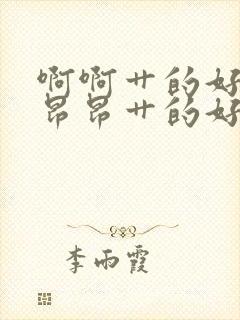 啊啊艹的好
昂昂艹的好
李雨霞